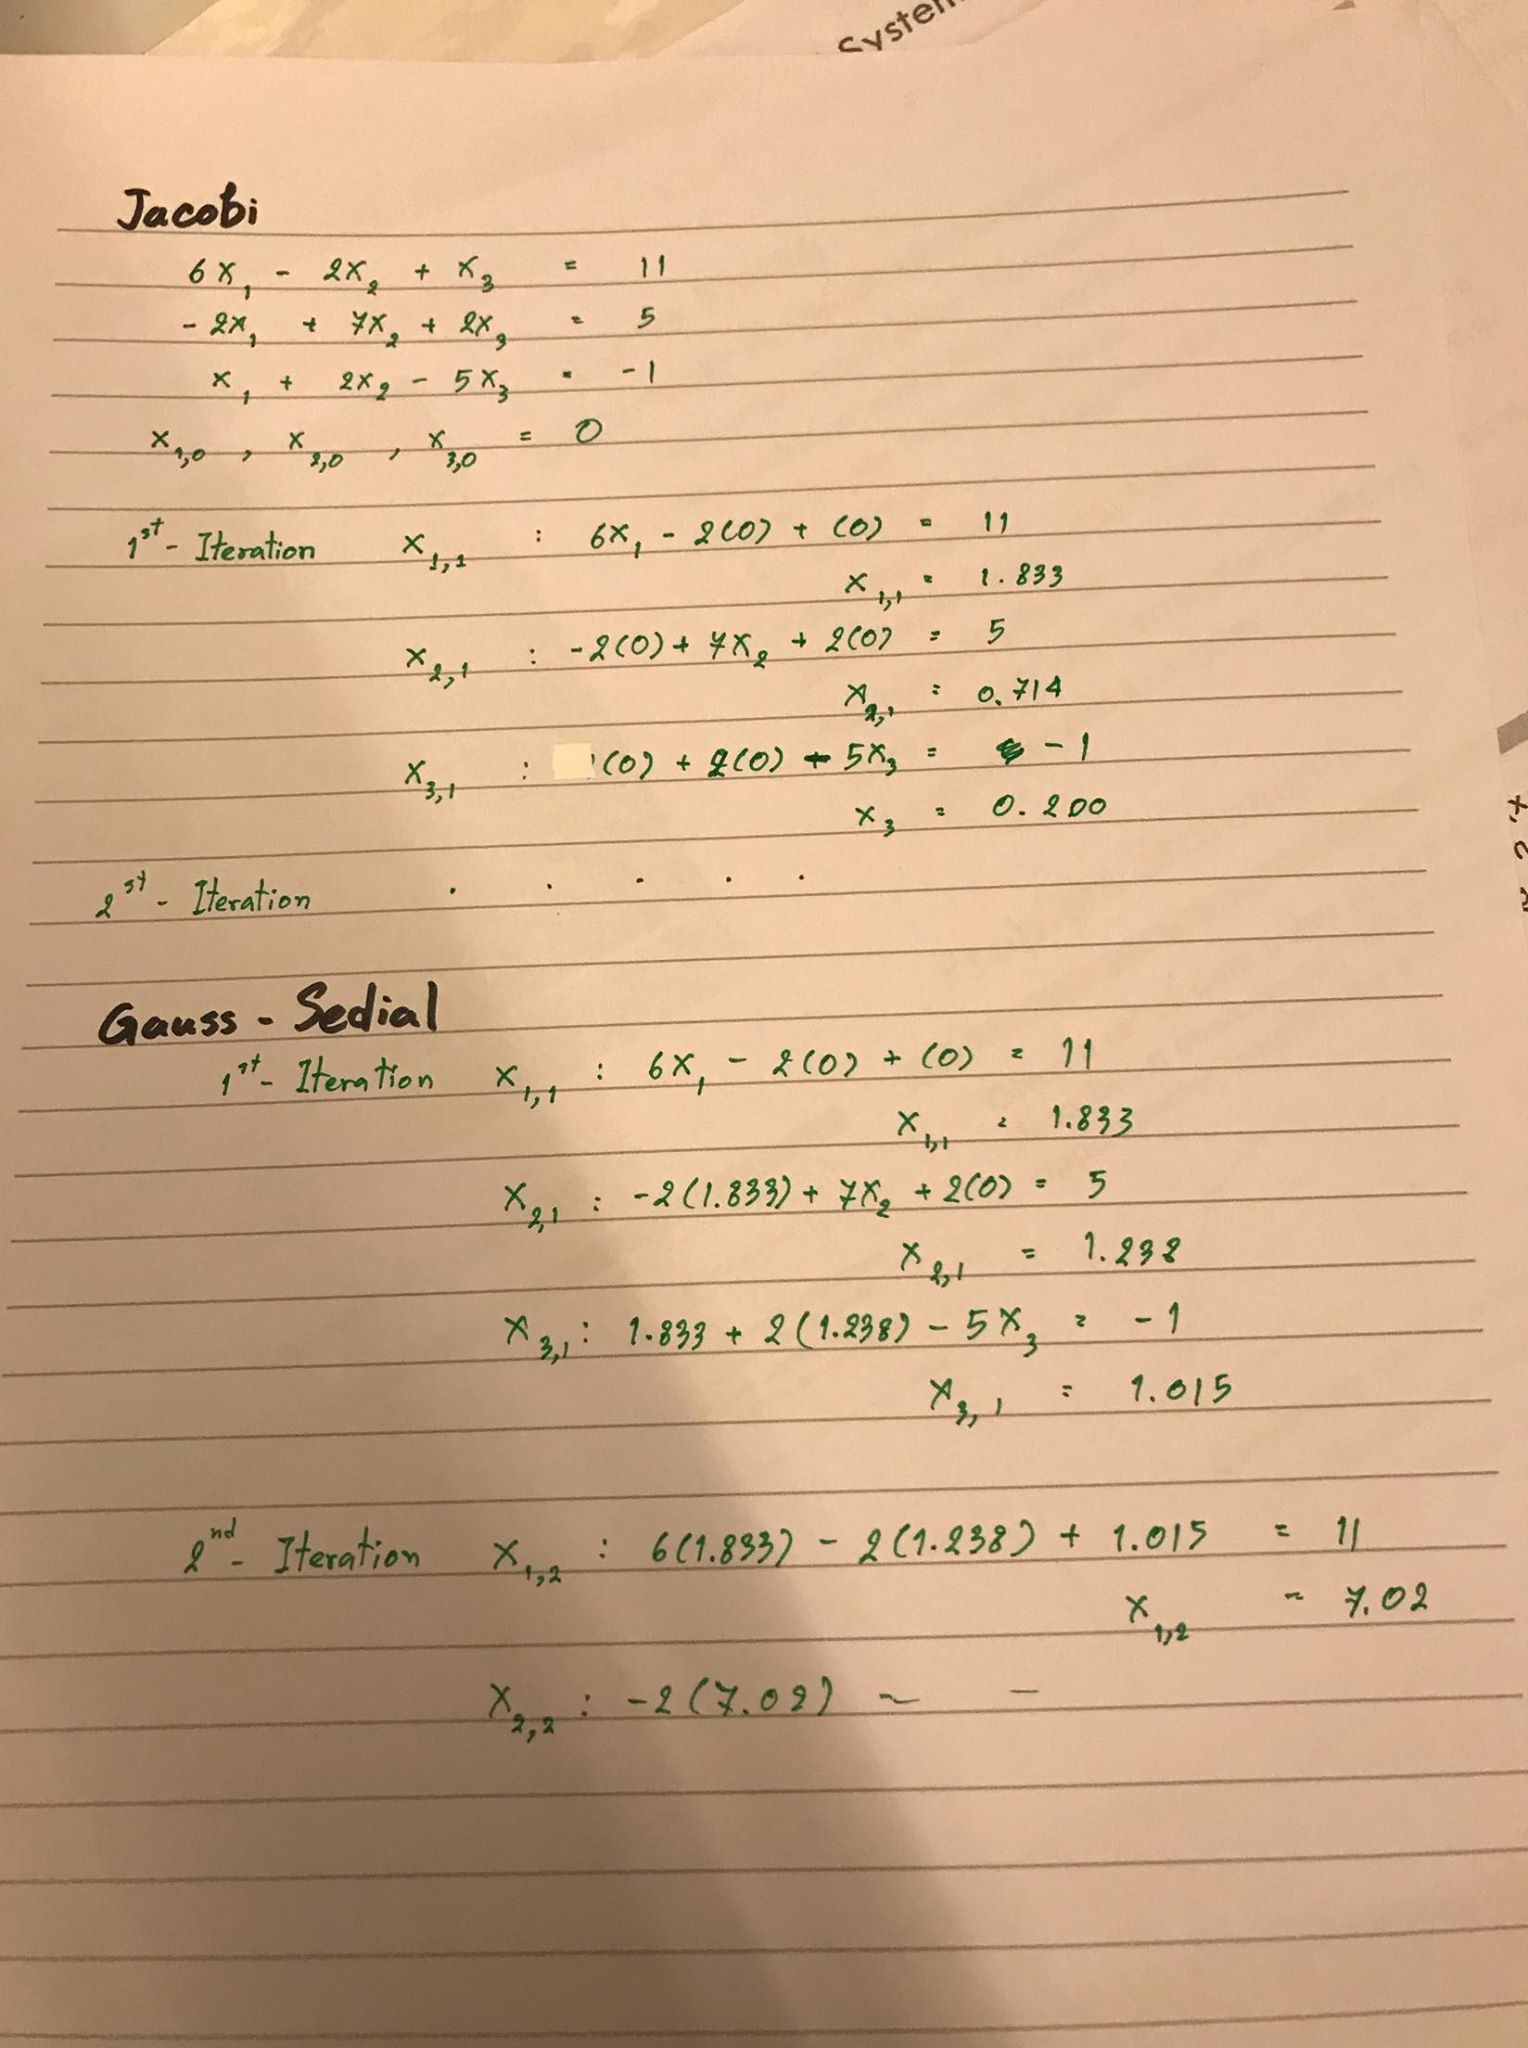 System
Jacobi
6x₁ - 2x₂ + x₃ = 11
- 2x₁ + 7x₂ + 2x₃ = 5
x₁ + 2x₂ - 5x₃ = -1
x₁,₀ , x₂,₀ , x₃,₀ = 0
1st - Iteration x₁,₁ : 6x₁ - 2(0) + (0) = 11
x₁,₁ = 1.833
x₂,₁ : -2(0) + 7x₂ + 2(0) = 5
x₂,₁ = 0.714
x₃,₁ : (0) + 2(0) - 5x₃ = -1
x₃ = 0.200
2st - Iteration . . . . .
Gauss - Sedial
1st - Iteration x₁,₁ : 6x₁ - 2(0) + (0) = 11
x₁,₁ = 1.833
x₂,₁ : -2(1.833) + 7x₂ + 2(0) = 5
x₂,₁ = 1.238
x₃,₁ : 1.833 + 2(1.238) - 5x₃ = -1
x₃,₁ = 1.015
2nd - Iteration x₁,₂ : 6(1.833) - 2(1.238) + 1.015 = 11
x₁,₂ = 7.02
x₂,₂ : -2(7.02) ~ -